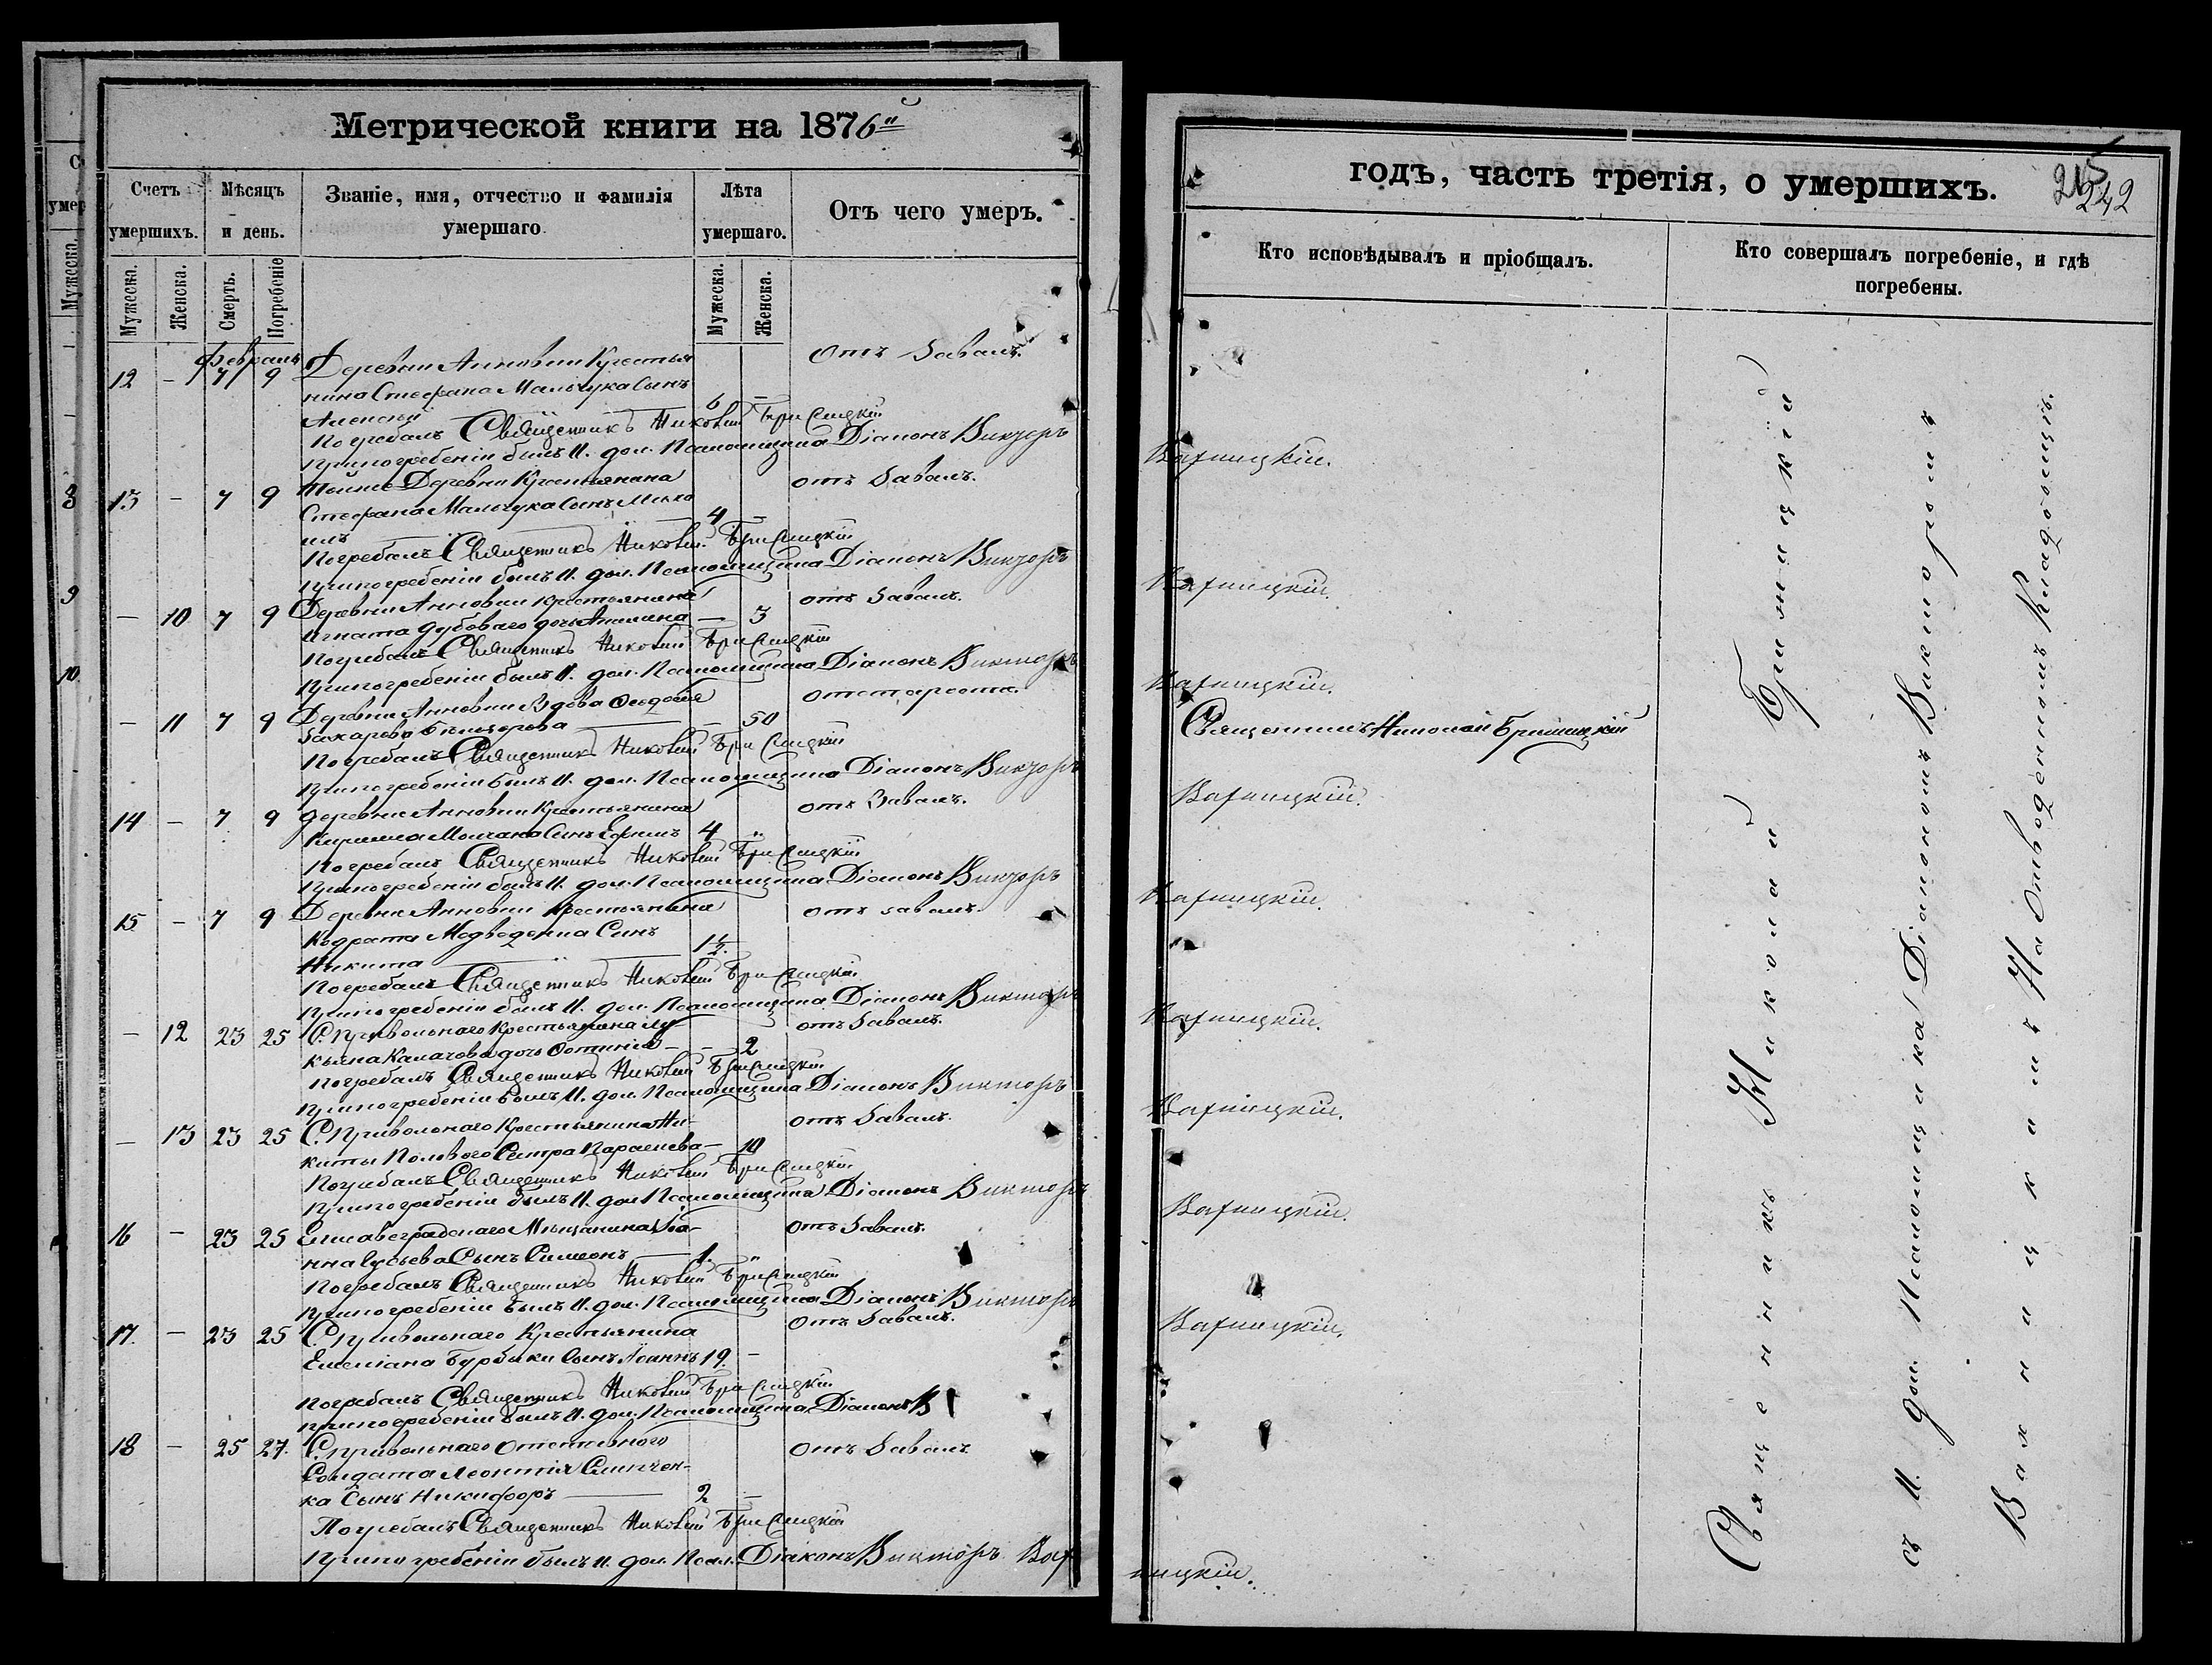 Метрической книги на 1876й
Счетъ умершихъ.
Мѣсяцъ и день.
Званіе, имя, отчество и фамилія умершаго.
Лѣта умершаго.
Отъ чего умеръ.
Мужеска.
Женска.
Смерть.
Погребеніе
Мужеска.
Женска.
Февраль
12 - 7 9 Деревни Анновки Крестья отъ Завалъ.
нина Стефана Мальчука Сынъ
Алексѣй 6 -
Погребалъ Священникъ Николай
При погребеніи былъ И. дол. Псаломщика Діаконъ Викторъ
Варницкій.
13 - 7 9 Тойже Деревни Крестьянина отъ Завалъ.
Стефана Мальчука Сынъ Миха
илъ 4 -
Погребалъ Священникъ Николай
При погребеніи былъ И. дол. Псаломщика Діаконъ Викторъ
Варницкій.
- 10 7 9 Деревни Анновки Крестьянина отъ Завалъ.
Игната Дубоваго дочь - 3
Погребалъ Священникъ Николай
При погребеніи былъ И. дол. Псаломщика Діаконъ Викторъ
Варницкій.
- 11 7 9 Деревни Анновки Вдова отъ старости.
Захарова - 50
Священникъ Николай
Погребалъ Священникъ Николай
При погребеніи былъ И. дол. Псаломщика Діаконъ Викторъ
Варницкій.
14 - 7 9 Деревни Анновки Крестьянина отъ Завалъ.
Кирилла Молчана Сынъ Ефимъ 4 "
Погребалъ Священникъ Николай
При погребеніи былъ И. дол. Псаломщика Діаконъ Викторъ
Варницкій.
15 - 7 9 Деревни Анновки Крестьянина отъ завалъ.
Кодрата Медведенка Сынъ
Никита 1½
Погребалъ Священникъ Николай
При погребеніи былъ И. дол. Псаломщика Діаконъ Викторъ
Варницкій.
- 12 23 25 С. Привольнаго Крестьянина Лу- отъ Завалъ.
кьяна Калачова дочь - 2
Погребалъ Священникъ Николай
При погребеніи былъ И. дол. Псаломщика Діаконъ Викторъ
Варницкій.
- 13 23 25 С. Привольнаго Крестьянина Ни- отъ Завалъ.
киты Сестра Параскева - 10
Погребалъ Священникъ Николай
При погребеніи былъ И. дол. Псаломщика Діаконъ Викторъ
Варницкій.
16 - 23 25 Елисаветградскаго Мѣщанина Іоа- отъ Завалъ.
нна Гусьева Сынъ Симеонъ 1. "
Погребалъ Священникъ Николай
При погребеніи былъ И. дол. Псаломщика Діаконъ Викторъ
Варницкій.
17. - 23 25 С. Привольнаго Крестьянина отъ Завалъ.
Емеліана Бурбыки Сынъ Іоаннъ 19. -
Погребалъ Священникъ Николай
При погребеніи былъ И. дол. Псаломщика Діаконъ В
18 - 25 27. С. Привольнаго Отставного отъ Завалъ
Солдата Леонтія Слипчен-
ка Сынъ Никифоръ 2 -
Погребалъ Священникъ Николай
При погребеніи былъ И. дол. Псал. Діаконъ Викторъ Вар
ницкій.
годъ, часть третія, о умершихъ.
242
Кто исповѣдывалъ и пріобщалъ.
Кто совершалъ погребеніе, и гдѣ погребены.
Священникъ Николай
съ И. дол. Псаломщика Діакономъ Викторомъ
Варницкимъ На Отведенномъ Кладбищѣ.
С
умер
Мужеска.
8
9
10